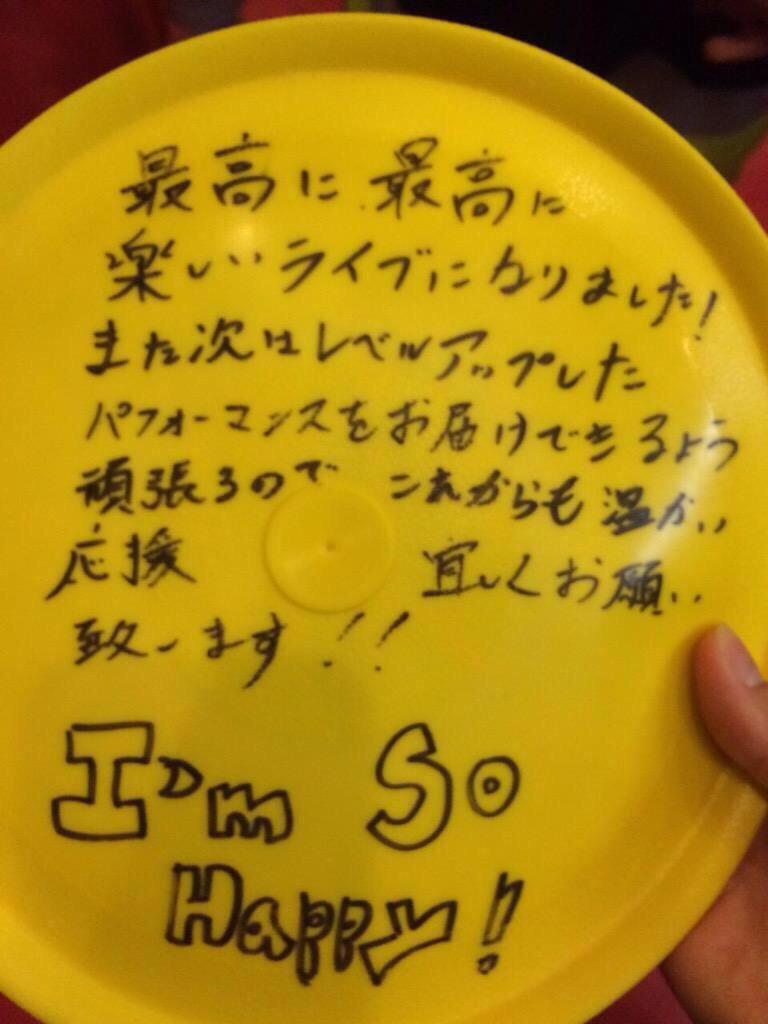 最高に最高に
楽しいライブになりました!
また次はレベルアップした
パフォーマンスをお届けできるよう
頑張るので これからも温かい
応援 宜しくお願い
致します!!
I'm So
Happy!